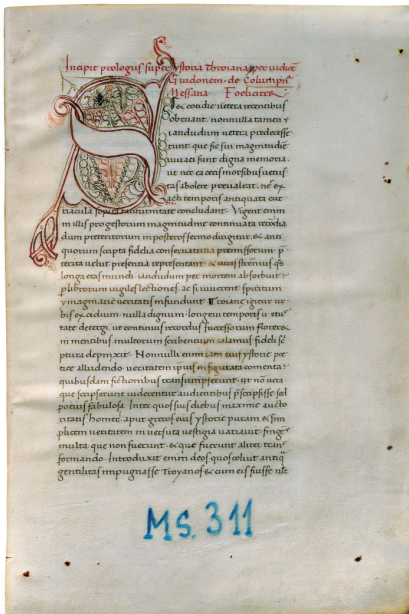 Incipit prologus super ystoria Throiana per iudice
Guidonem de Columpn
Messana Foelicites
S et condie vetera recentibus
obruant. nonnulla tamen
iandudum vetera predecesse
runt. que sic sui magnitudie
vivaci sunt digna memoria
ut nec ea cecis morsibus vetus
tas abolere prevaleat. ne ex
acti temporis antiquata cur
ricula sopita taciturnitate concludant. Vigent enim
in illis pro gestorum magnitudine continuata recordia
dum preteritorum in posteros sermo dirigitur. et anti
quorum scripta fidelia conservativa premissorum p
terita velut presentia representant. et viris strenuis qs
longa etas mundi iandudum per mortem absorbuit
p librorum vigiles lectiones. ac si viverent spiritum
ymaginarie veritatis infundunt. Troiane igitur ur
bis excidium nulla dignum longevi temporis vetu
state detergi. ut continuis recordiis successorum floreret
in mentibus. multorum scribentium calamus fideli sc
ptura depinxit. Nonnulli enim iam eius ystorie poe
tice alludendo. veritatem ipsius in figurata comenta
quibusdam fictionibus transumpserunt. ut non vera
que scripserunt viderentur audientibus pscripsisse sed
potius fabulosa. Inter quos suis diebus maxime aucto
ritatis homer. aput grecos eius ystorie puram et sim
plicem veritatem in versuta vestigia variavit. finges
multa que non fuerunt. et que fuerunt aliter tran
formando. Introduxit enim deos quos coluit antiq
gentilitas impugnasse Troyanos et cum eis fuisse
MS. 311